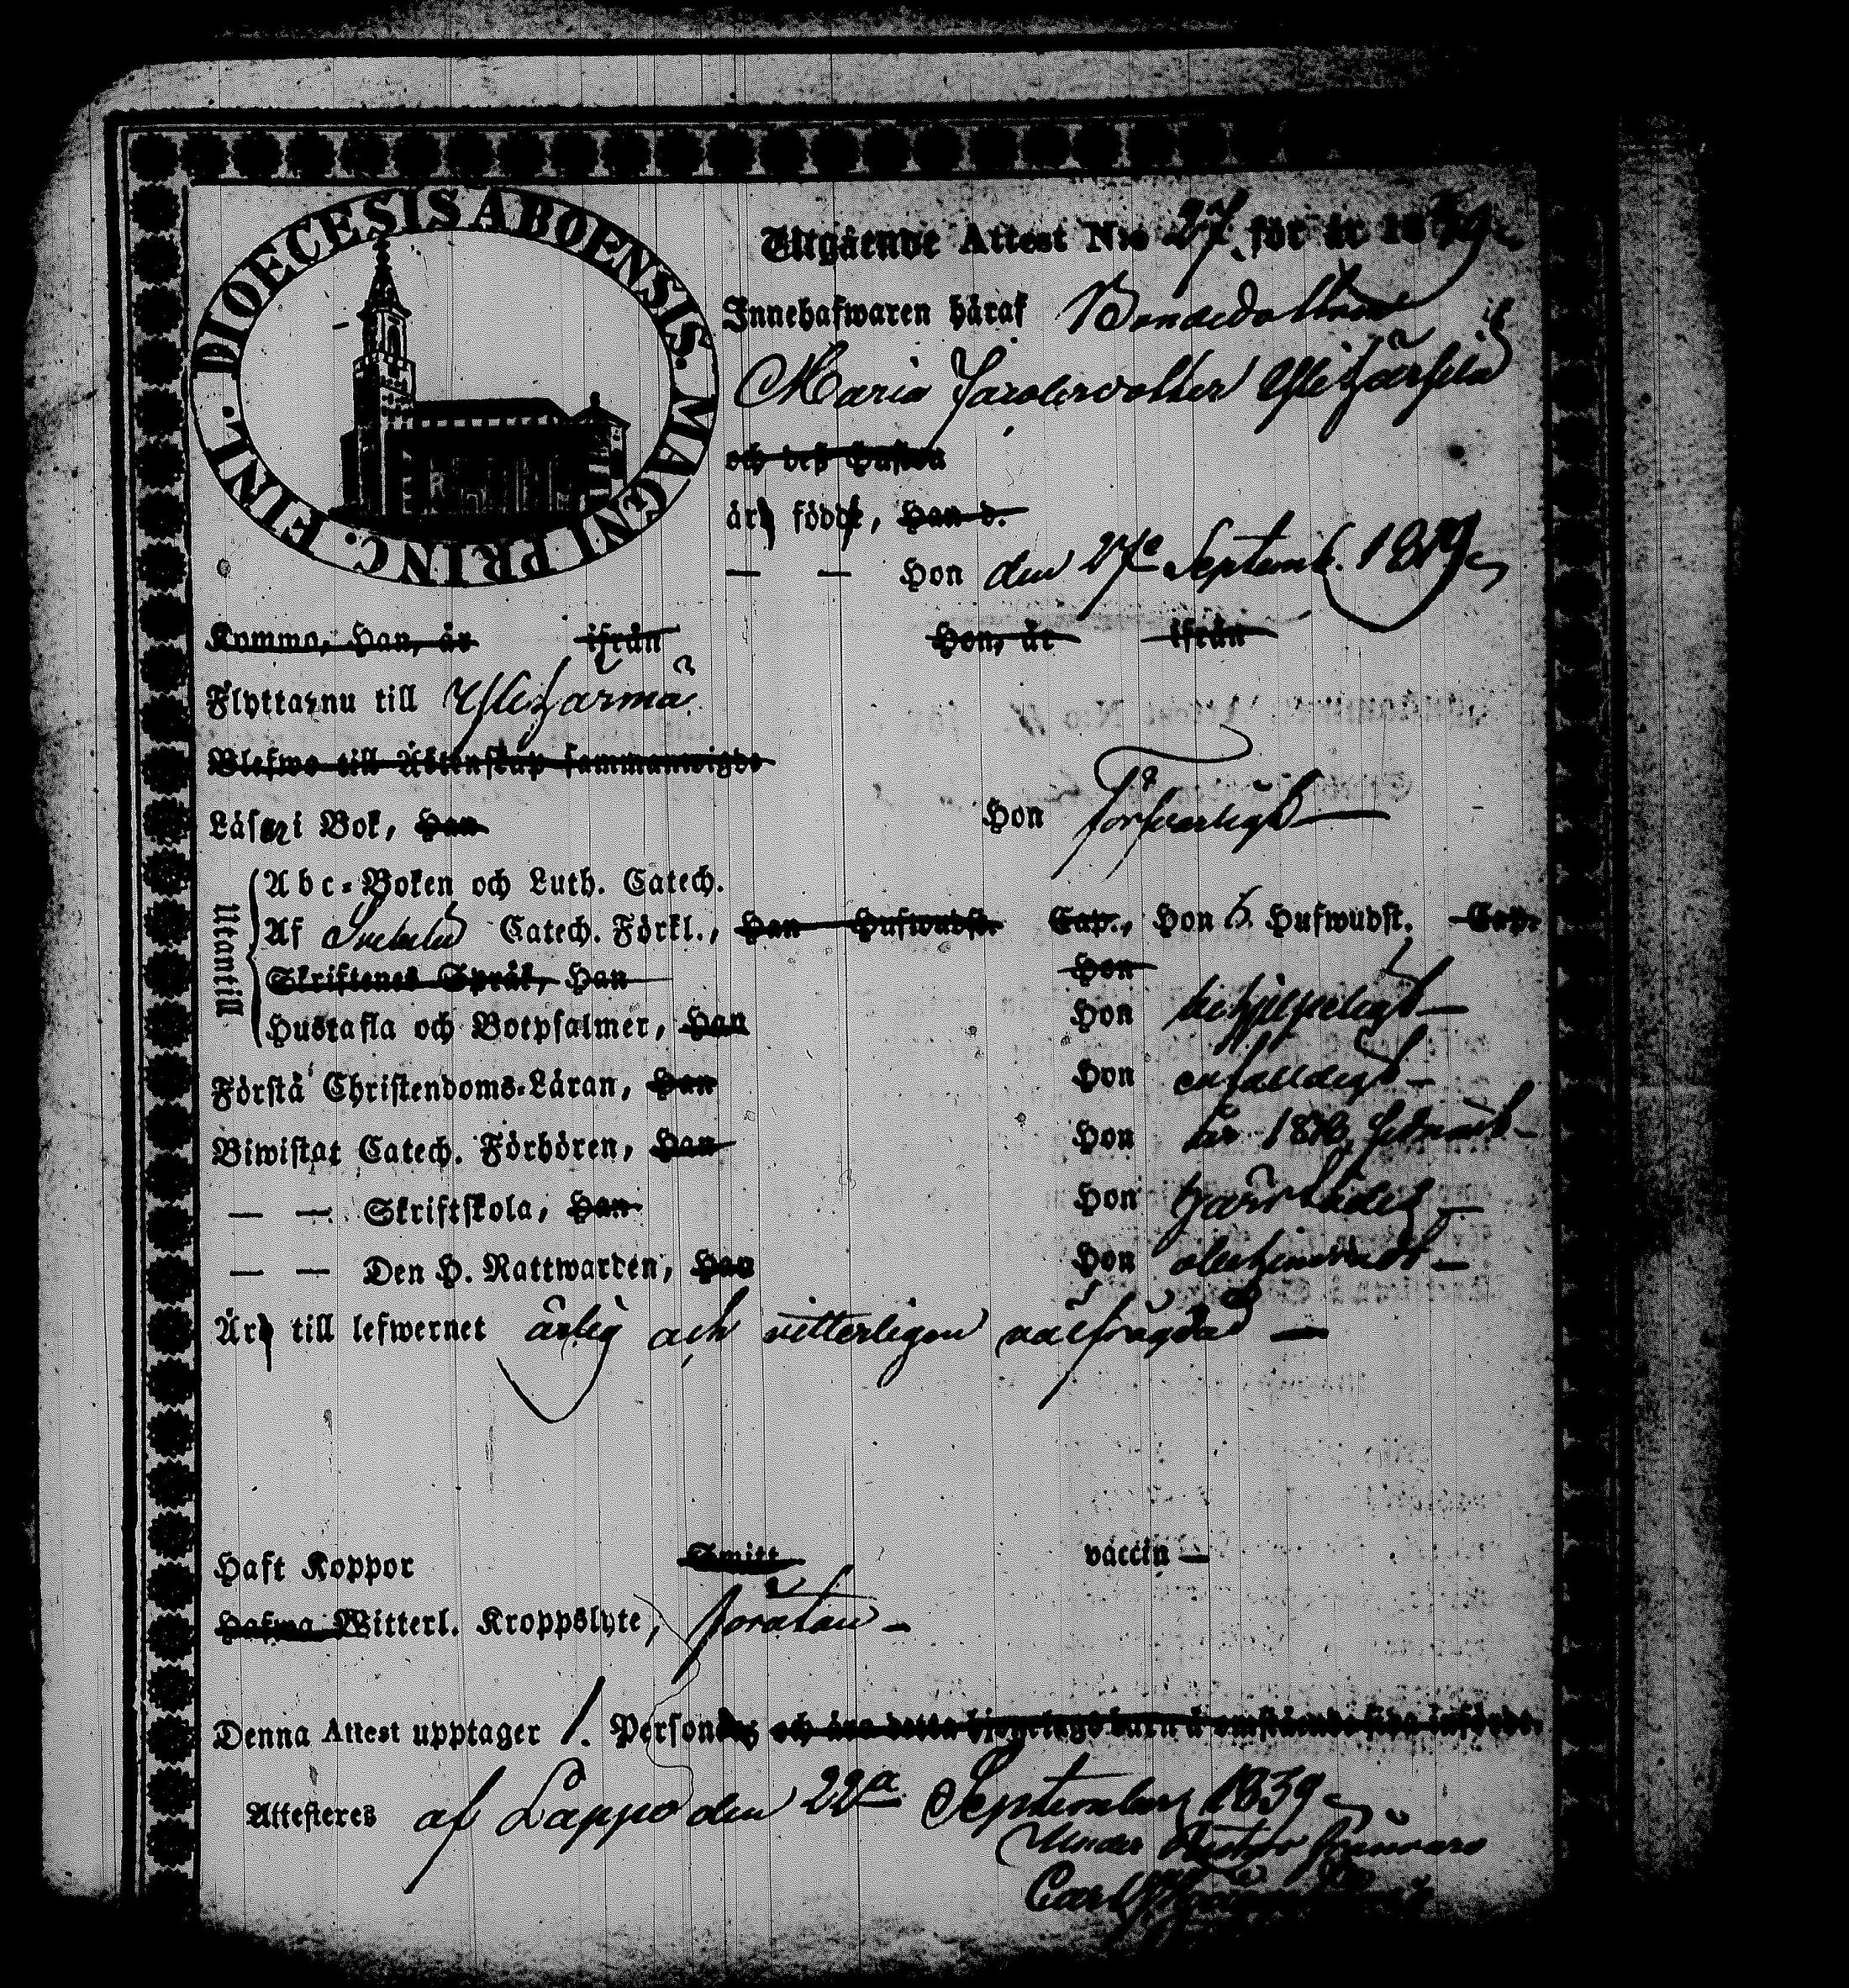 DIOECESIS ABOENSIS. MAGNI PRINC. FINL.
Utgående Attest N:o 27. för år 1839
Innehafwaren häraf Bondedottren
Maria Jacobsdotter
och deß Hustru
är född, Han d.
— — Hon den 27e Septemb. 1819
Komma, Han, är ifrån Hon, är ifrån
Flyttar nu till Ylihärmä
Blefwo till Äktenskap sammanwigde
Läser i Bok, Han Hon försvarligt —
Utantill
Abc-Boken och Luth. Catech.
Af Svebelii Catech. Förkl., Han Hufwudst. Cap., Hon 5. Hufwudst. Cap.
Skriftenes Språk, Han Hon
Hustafla och Botpsalmer, Han Hon behjelpeligt —
Förstå Christendoms-Läran, Han Hon enfaldigt —
Biwistat Catech. Förhören, Han Hon år
— — Skriftskola, Han Hon
— — Den H. Nattwarden, Han Hon obehindradt —
Är till lefwernet ärlig och vitterligen välfrägdad —
Haft Koppor Smitt vaccin —
Hafwa Witterl. Kroppslyte, förutan —
Denna Attest upptager 1. Person och äro detta hjonelags barn å omstående sida införde.
Attesteres af Lappo den 22a September 1839
Carl